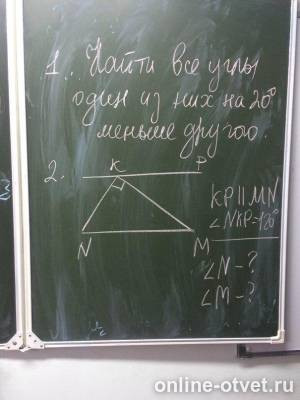 1. Найти все углы
один из них на 20°
меньше другого.
2.
K P
N M
KP || MN
∠NKP=120°
∠N-?
∠M-?
online-otvet.ru